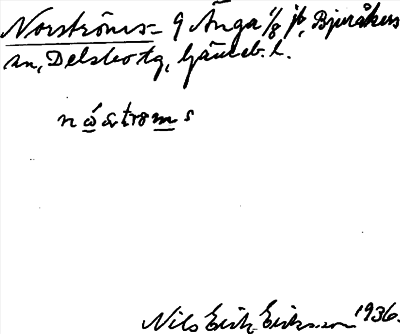 Norströms= 9 Änga 1/8 jb, Bjuråkers
sn, Delsbo tg, Gävleb. l.
nåstroms
Nils Erik Eriksson 1936.